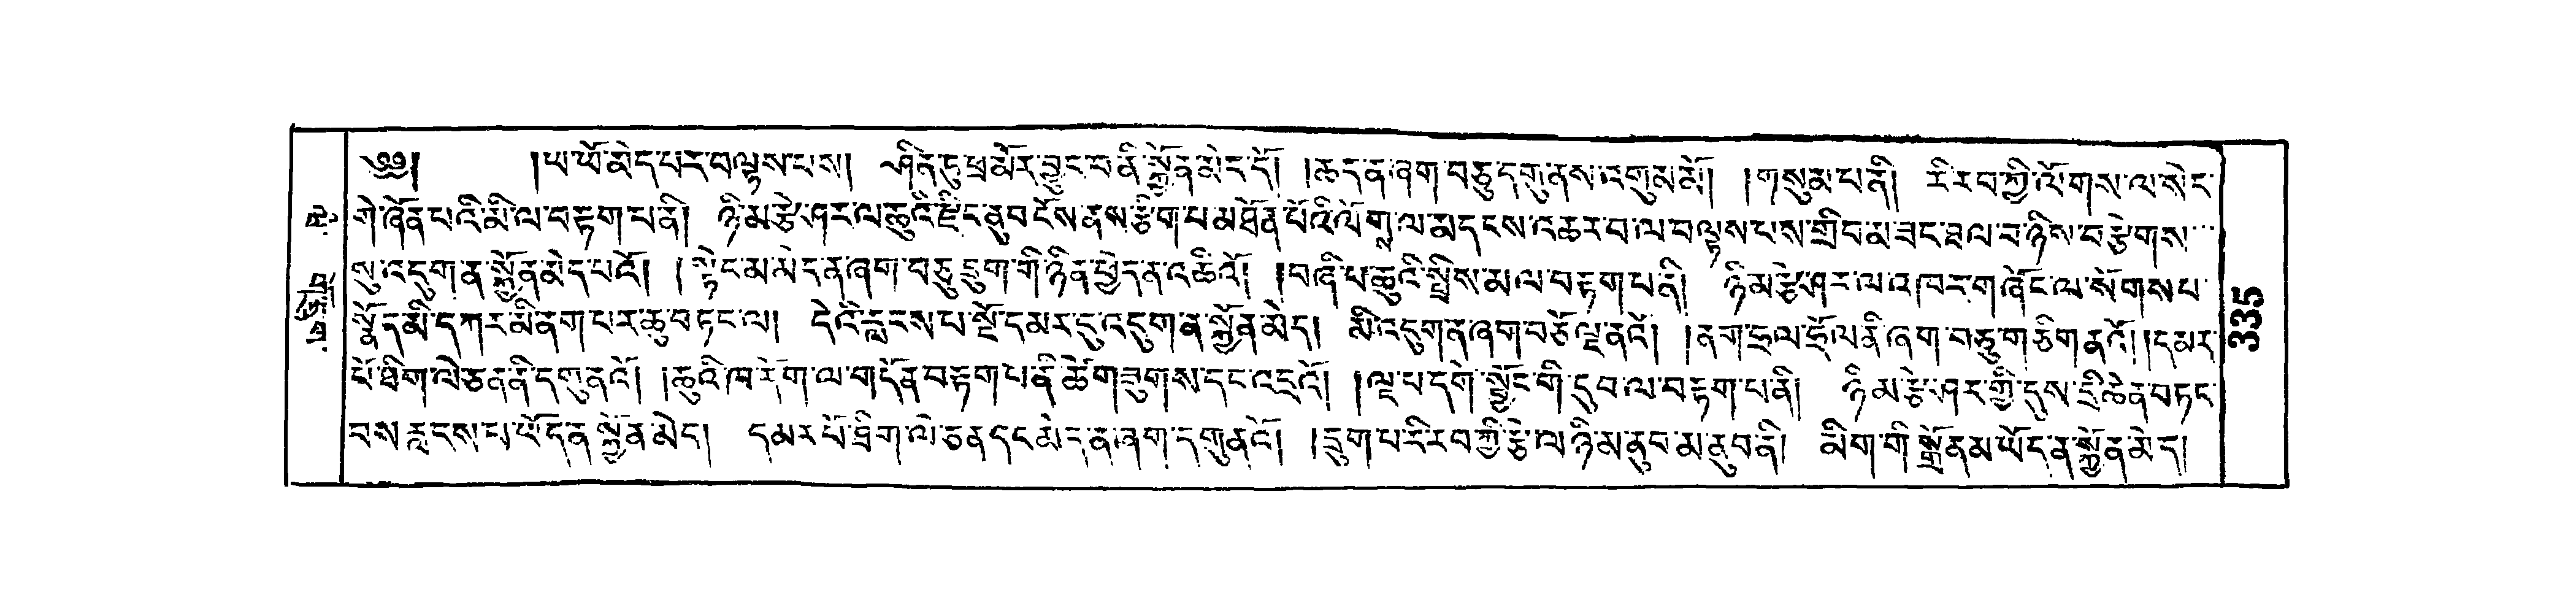 ༄༅། །པ་ཡོ་མེད་པར་བལྟས་པས། ཤིན་ཏུ་ཕྲ་མོར་བྱུང་བ་ནི་སྐྱོན་མེད་དོ། །ཆད་ན་ཞག་བཅུ་དགུ་ནས་འགུམ་མོ། །གསུམ་པ་ནི། རི་རབ་ཀྱི་ལོགས་ལ་སེང་
གེ་ཞོན་པའི་མི་ལ་བརྟག་པ་ནི། ཉི་མ་རྩེ་ཤར་ལ་ཆུའི་རྫིང་ནུབ་ངོས་ནས་རྩིག་པ་མཐོན་པོའི་ལོགས་ལ་མདངས་འཆར་བ་ལ་བལྟས་པས་གྲིབ་མ་ཟང་ཟལ་བ་ཉིས་བརྩེགས་
སུ་འདུག་ན་སྐྱོན་མེད་པའོ། །སྟེང་མ་མེད་ན་ཞག་བཅུ་དྲུག་གི་ཉིན་ཕྱེད་ན་འཆིའོ། །བཞི་པ་ཆུའི་སྤྲིས་མ་ལ་བརྟག་པ་ནི། ཉི་མ་རྩེ་ཤར་ལ་འཁར་གཞོང་ལ་སོགས་པ་
སྣོད་མི་དཀར་མི་ནག་པར་ཆུ་བཏང་ལ། དེའི་རླངས་པ་སྔོ་དམར་དུ་འདུག་ན་སྐྱོན་མེད། མི་འདུག་ན་ཞག་བཅོ་ལྔ་ནའོ། །ནག་ཧྲལ་ཧྲོལ་ནི་ཞག་བཅུ་གཅིག་ནའོ། །དམར་
པོ་ཐིག་ལེ་ཅན་ནི་དགུ་ནའོ། །ཆུའི་ཁ་དོག་ལ་གདོན་བརྟག་པ་ནི་ཚེ་གཟུགས་དང་འདྲའོ། །ལྔ་པ་དགེ་སྦྱོང་གི་དུབ་ལ་བརྟག་པ་ནི། ཉི་མ་རྩེ་ཤར་གྱི་དུས་དྲི་ཆེན་བཏང་
བས་རླངས་པ་ཡོད་ན་སྐྱོན་མེད། དམར་པོ་ཐིག་ལེ་ཅན་དང་མེད་ན་ཞག་དགུ་ནའོ། །དྲུག་པ་རི་རབ་ཀྱི་རྩེ་ལ་ཉི་མ་ནུབ་མ་ནུབ་ནི། མིག་གི་སྒྲོན་མ་ཡོད་ན་སྐྱོན་མེད།